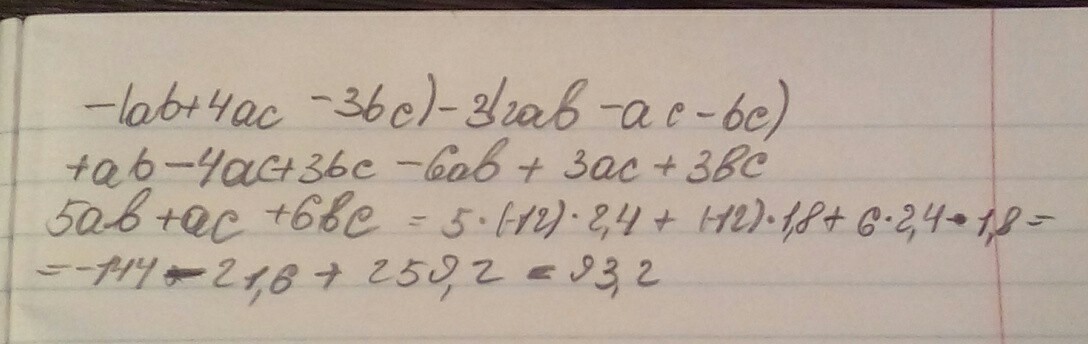 -(ab+4ac -3bc)-3(2ab -ac-bc)
+ab-4ac+3bc -6ab + 3ac + 3bc
5ab+ac +6bc = 5·(-12)·2,4 + (-12)·1,8+ 6·2,4·1,8=
=-144-21,6 + 259,2 = 93,2